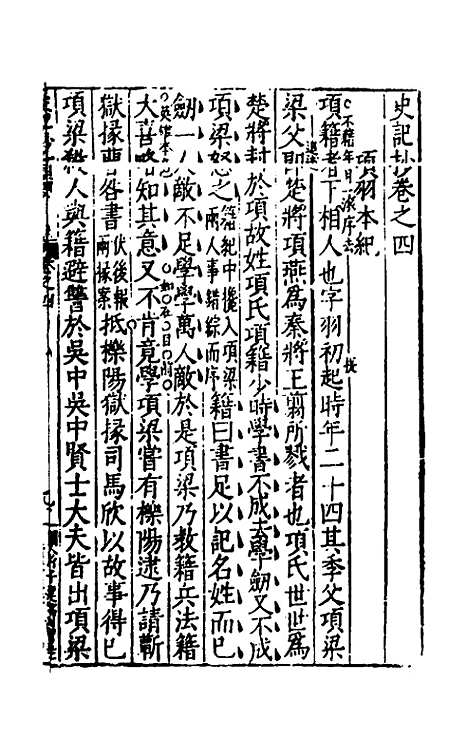 史記抄卷之四
項羽本紀
項籍者下相人也字羽初起時年二十四其季父項梁
梁父即楚將項燕爲秦將王翦所戮者也項氏世世爲
楚將封於項故姓項氏項籍少時學書不成去學劒又不成
項梁怒之籍紀中攙入項梁兩人事錯綜而序籍曰書足以記名姓而已
劒一人敵不足學學萬人敵於是項梁乃教籍兵法籍
大喜略知其意又不肯竟學項梁嘗有櫟陽逮乃請蘄
獄掾曹咎書伏後報兩掾案抵櫟陽獄掾司馬欣以故事得已
項梁殺人與籍避讐於吳中吳中賢士大夫皆出項梁